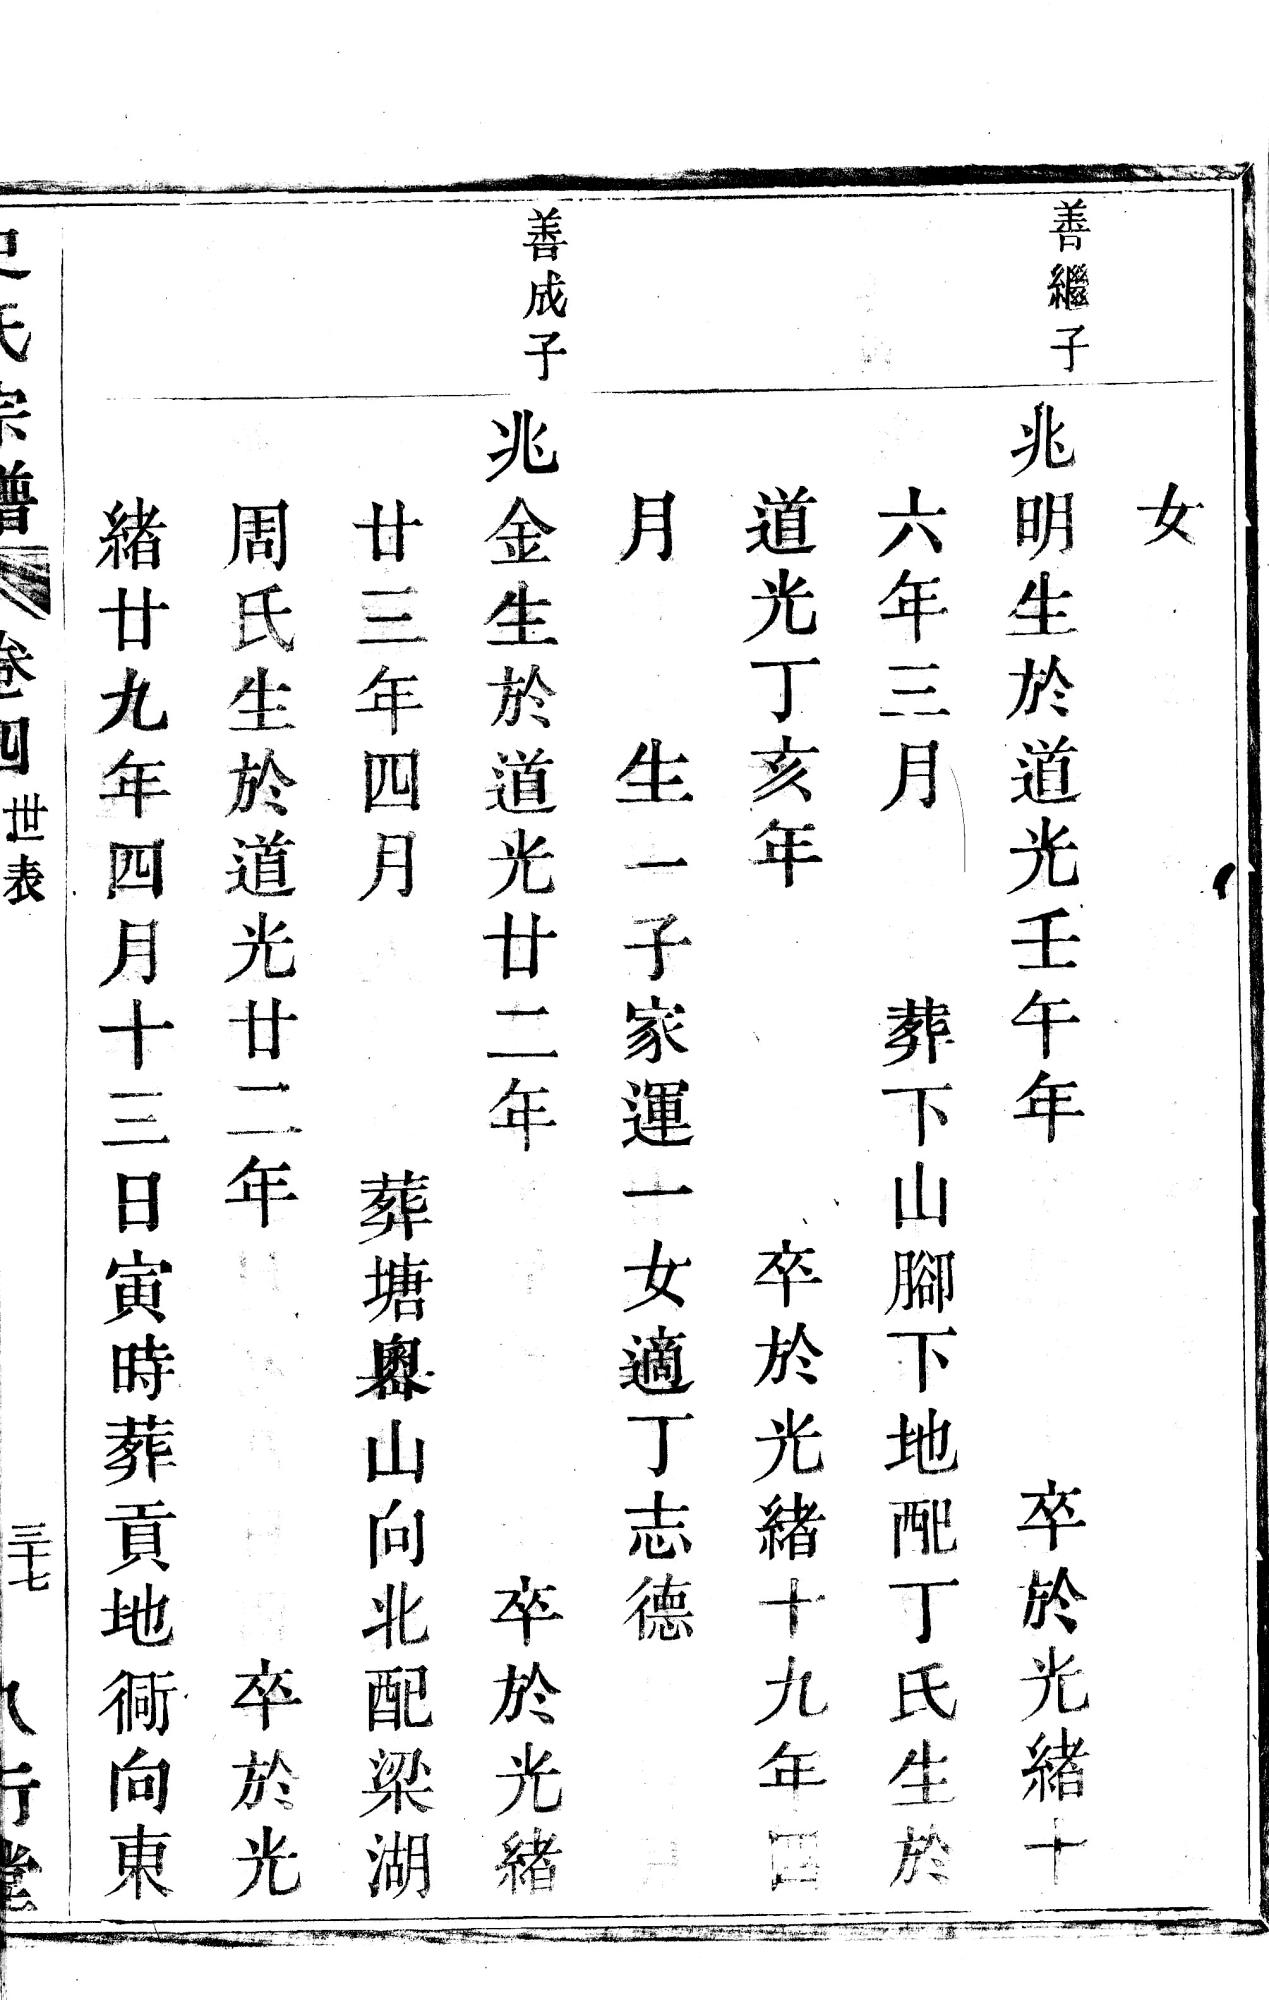 女
善繼子
兆明生於道光壬午年　卒於光緒十
六年三月　葬下山腳下地配丁氏生於
道光丁亥年　卒於光緒十九年四
月　生一子家運一女適丁志德
善成子
兆金生於道光廿二年　卒於光緒
廿三年四月　葬塘奧山向北配梁湖
周氏生於道光廿二年　卒於光
緒廿九年四月十三日寅時葬貢地衕向東
史氏宗譜　卷四　世表　三十七　八行堂